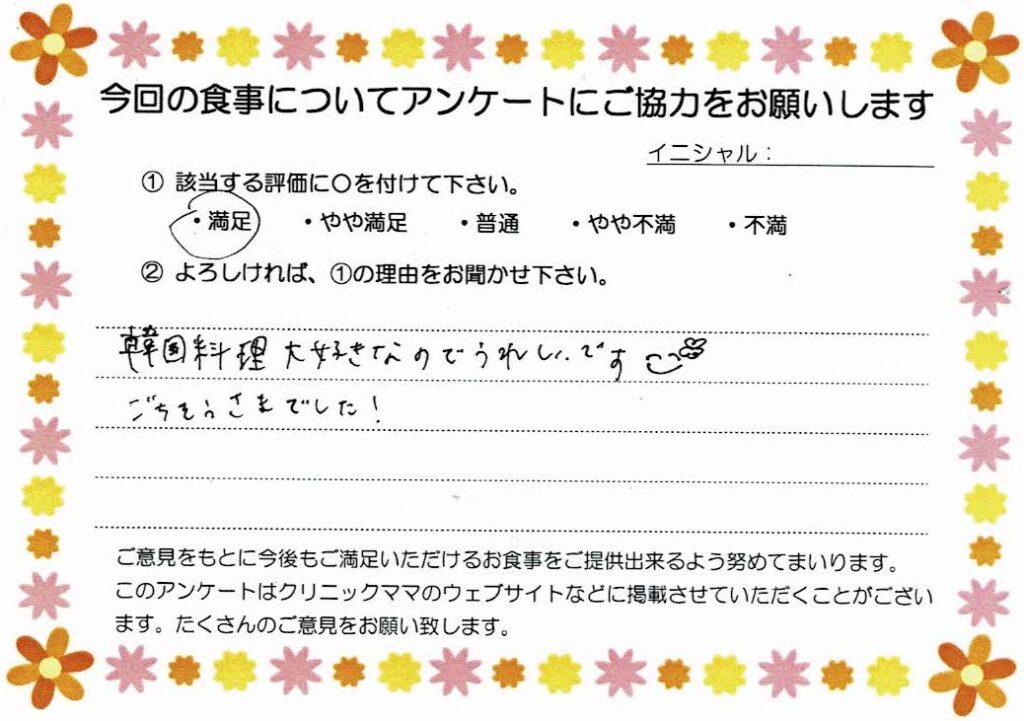 今回の食事についてアンケートにご協力をお願いします
イニシャル：
① 該当する評価に〇を付けて下さい。
・満足 ・やや満足 ・普通 ・やや不満 ・不満
② よろしければ、①の理由をお聞かせ下さい。
韓国料理大好きなのでうれしいです
ごちそうさまでした！
ご意見をもとに今後もご満足いただけるお食事をご提供出来るよう努めてまいります。
このアンケートはクリニックママのウェブサイトなどに掲載させていただくことがござい
ます。たくさんのご意見をお願い致します。